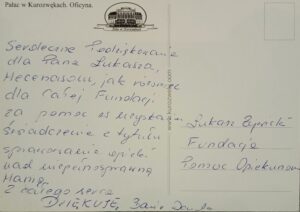 Pałac w Kurozwękach. Oficyna.
Serdeczne Podziękowanie
dla Pana Łukasza,
Mecenasów, jak również
dla Całej Fundacji
za pomoc w uzyskaniu
Świadczenia z tytułu
sprawowania opieki
nad niepełnosprawną
Mamą
Z całego serca
DZIĘKUJĘ,
www.kurozweki.com
Łukasz
Fundacja
Pomoc Opiekunom